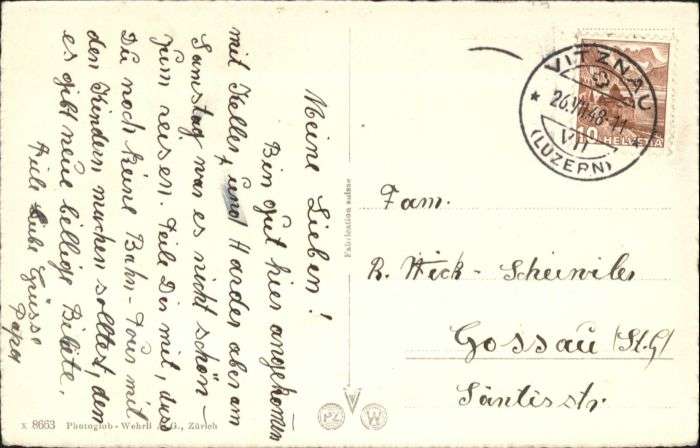 Meine Lieben!
Bin gut hier angekommen
mit Keller und Harder aber am
Samstag war es nicht schön
zum reisen. Teile Dir mit, dass
Du noch keine Bahn-Tour mit
den Kindern machen solltest, den
es gibt neue billige Billete.
Viele liebe Grüsse
Papa
Fabrication suisse
VITZNAU
26.VII.48-11
VII
(LUZERN)
10 HELVETIA
Fam.
R. Weck-Scheiwiler
Gossau (St.G)
Säntisstr.
X 8663 Photoglob-Wehrli A.G., Zürich
PZ W